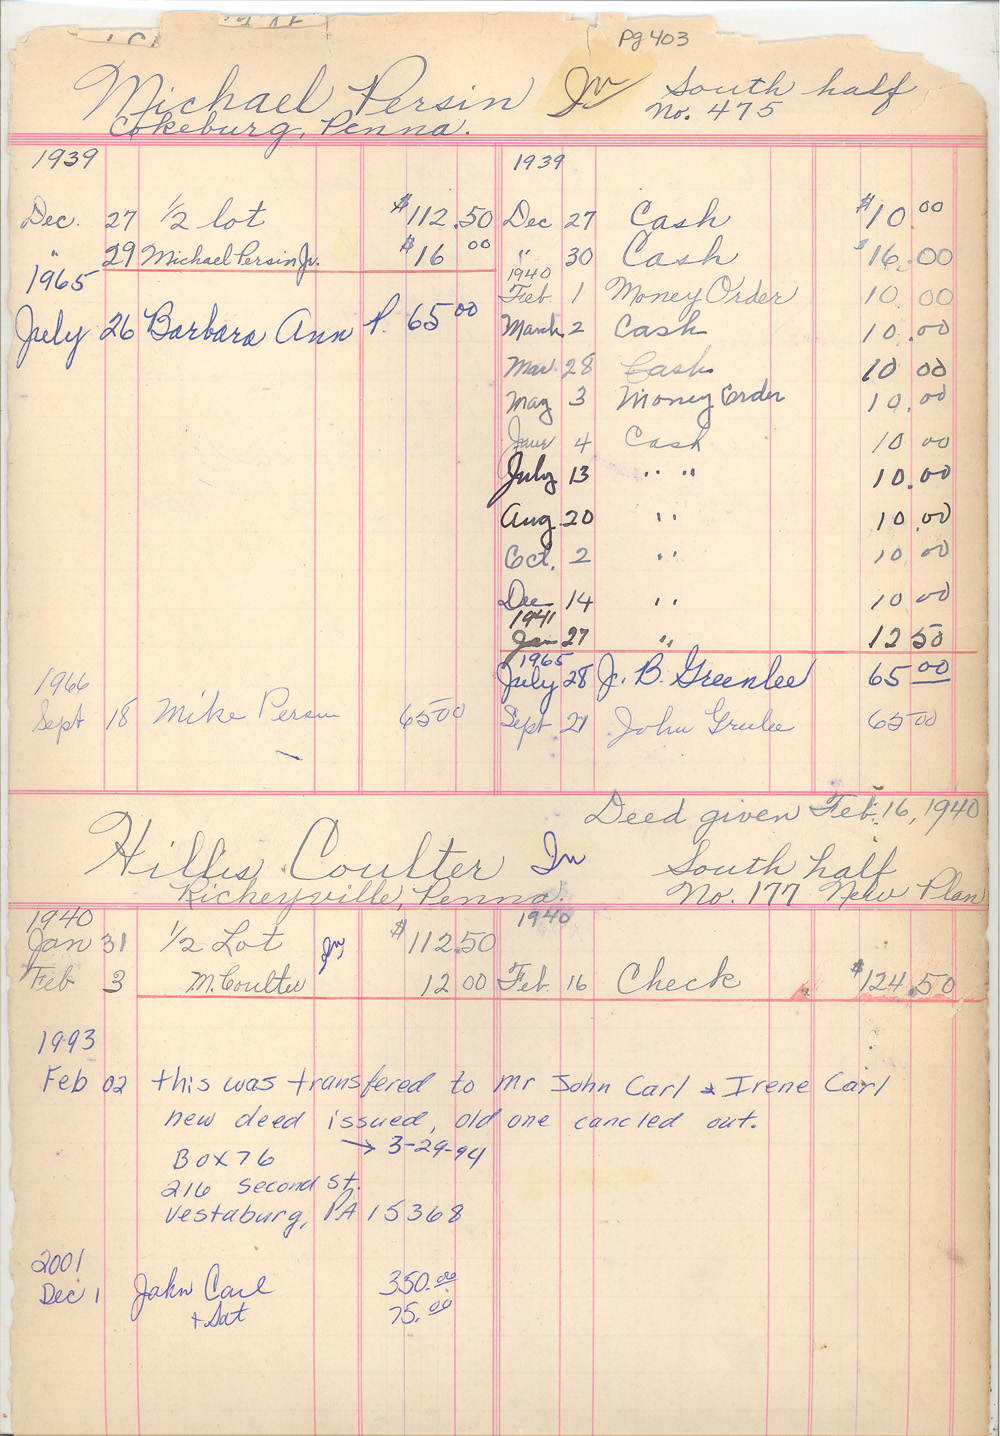 Pg 403
Michael Persin Jr South half
Cokeburg, Penna. No. 475
1939 1939
Dec. 27 1/2 lot $112.50 Dec 27 Cash $10.00
" 29 Michael Persin Jr. $16 00 " 30 Cash $16.00
1965 1940
Feb. 1 Money Order 10.00
July 26 Barbara Ann P. 65 00 March 2 Cash 10.00
Mar 28 Cash 10 00
May 3 Money Order 10.00
June 4 Cash 10 00
July 13 " " 10.00
Aug 20 " 10.00
Oct. 2 " 10 00
Dec 14 " 10 00
1941
Jan 27 " 12 50
1965
July 28 J. B. Greenlee 65 00
1966
Sept 18 Mike Persin 65 00 Sept 21 John Grulee 65 00
Deed given Feb. 16, 1940
Hillis Coulter In South half
Richeyville, Penna. No. 177 New Plan
1940 1940
Jan 31 1/2 Lot $112.50
Feb 3 M. Coulter 12 00 Feb. 16 Check $124.50
1993
Feb 02 this was transfered to Mr John Carl & Irene Carl
new deed issued, old one cancled out.
Box 76 → 3-29-94
216 Second St.
Vestaburg, PA 15368
2001
Dec 1 John Carl 350.00
+ Sat 75.00